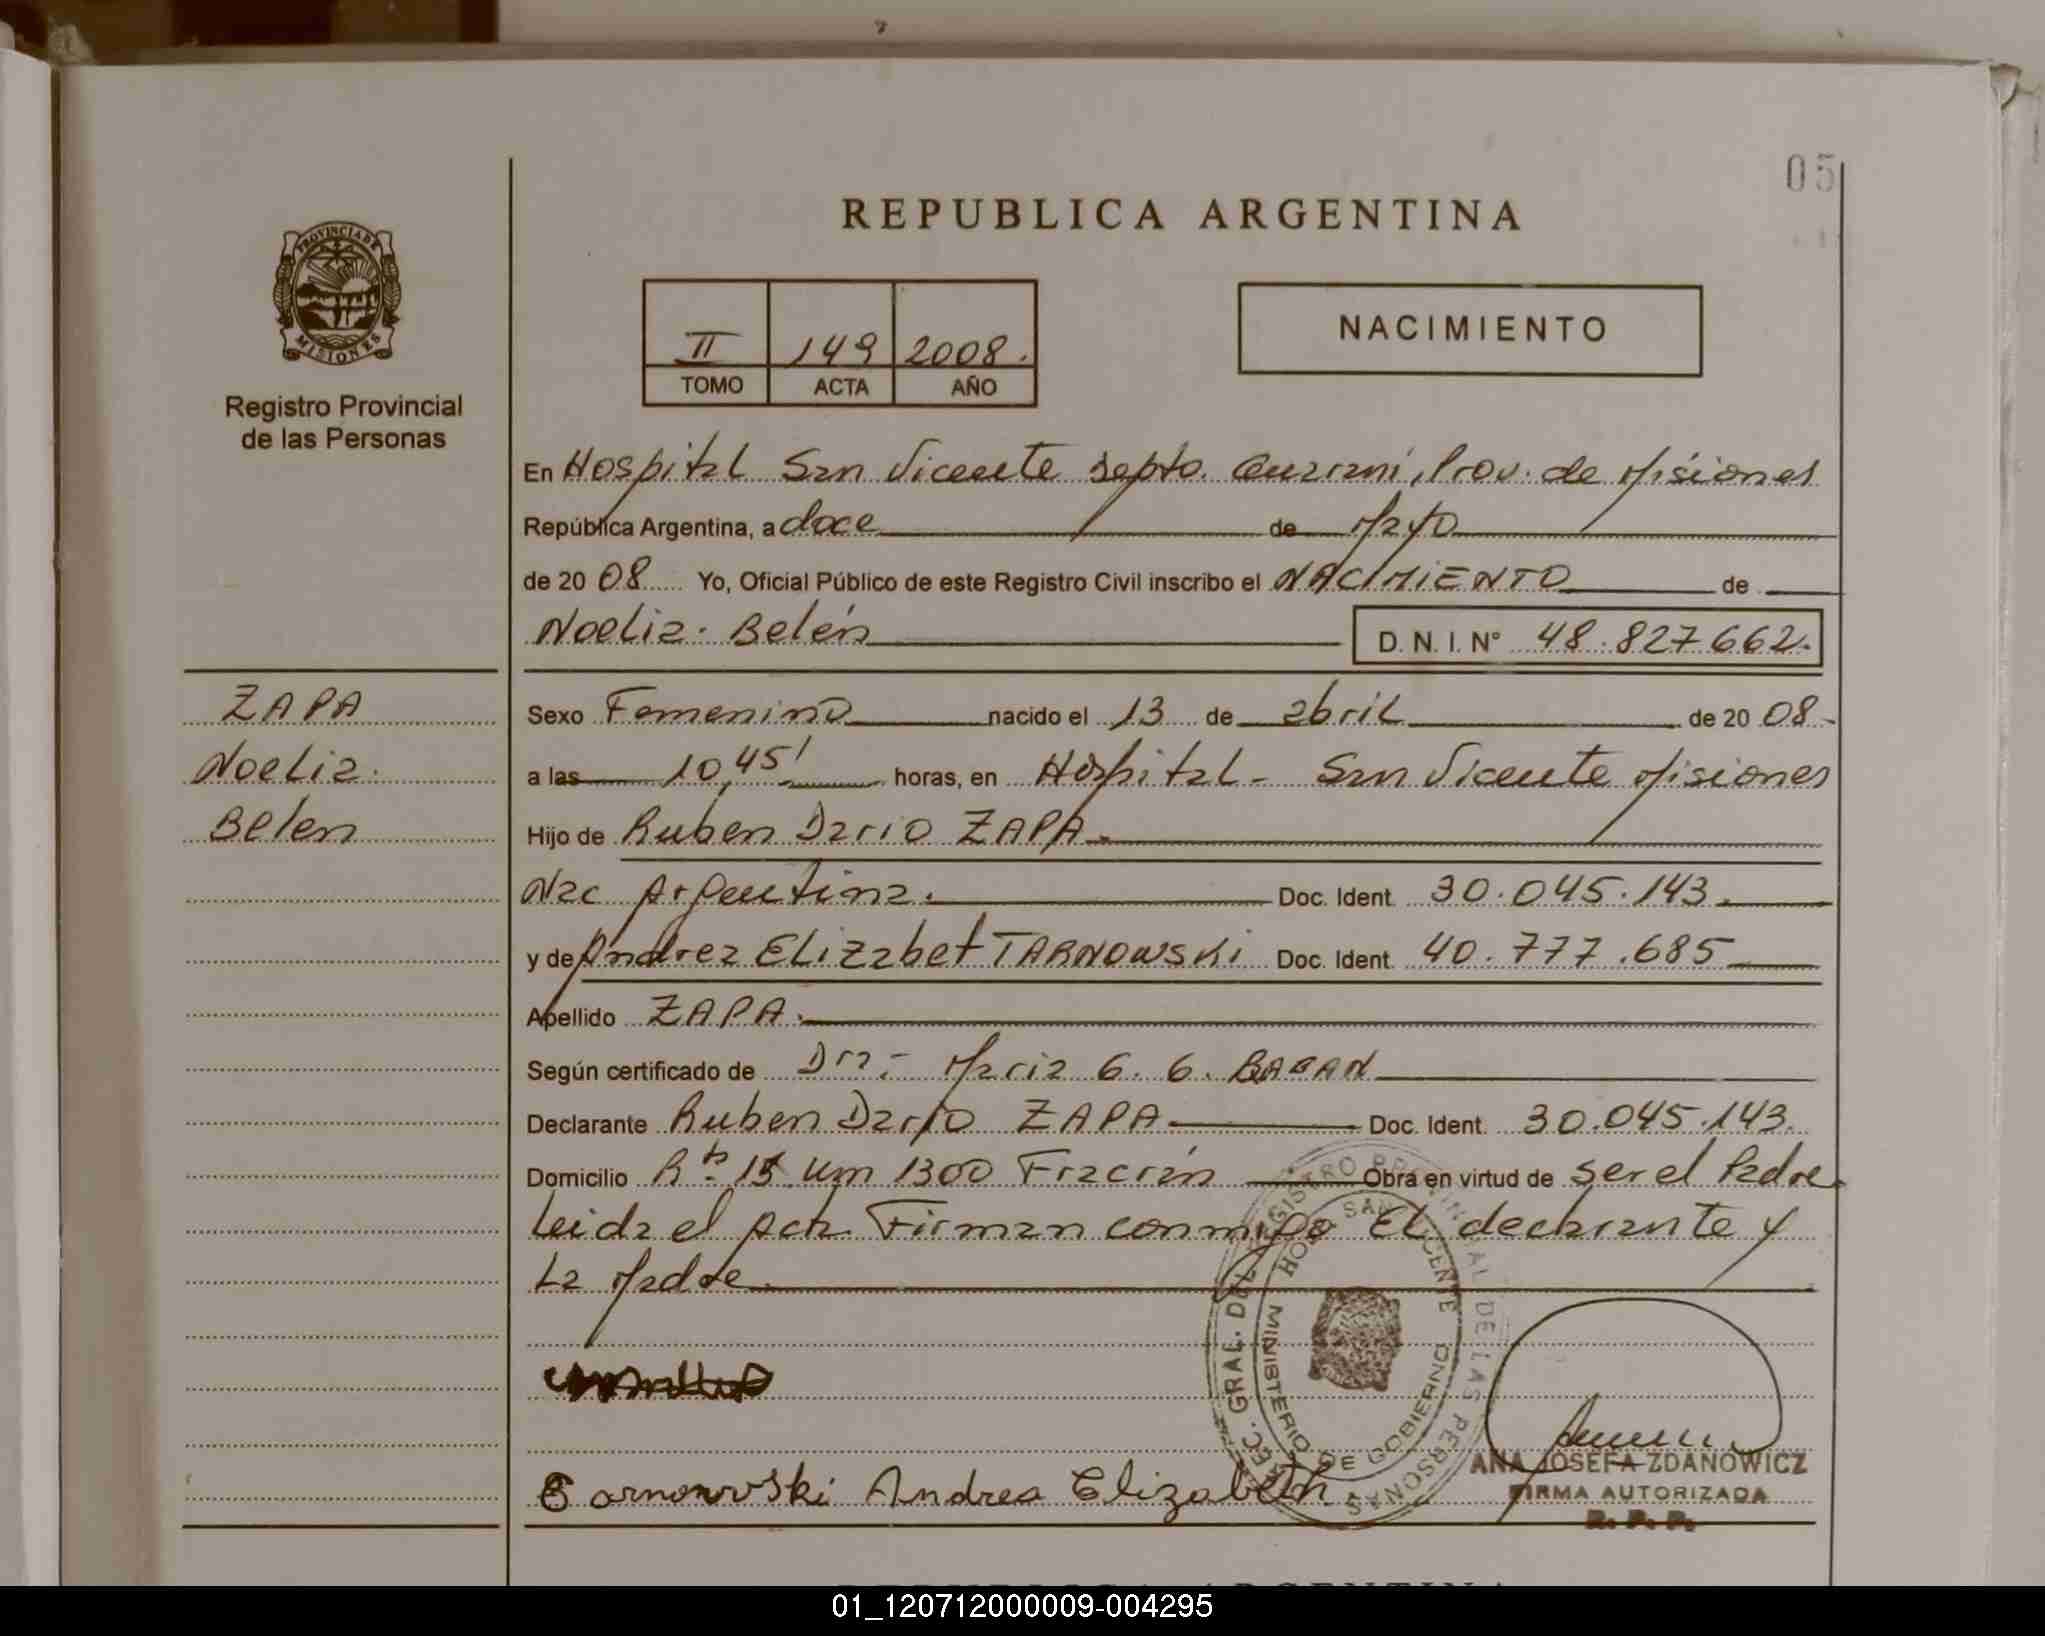 05
REPUBLICA ARGENTINA
PROVINCIA DE
MISIONES
Registro Provincial
de las Personas
II 149 2008.
TOMO ACTA AÑO
NACIMIENTO
En Hospital San Vicente Depto. Guarani, Prov. de Misiones
República Argentina, a doce de Mayo
de 20 08 Yo, Oficial Público de este Registro Civil inscribo el NACIMIENTO de
Noelia. Belén D. N. I. N° 48.827662.
ZAPA
Noelia.
Belen
Sexo Femenino nacido el 13 de abril de 20 08
a las 10,45' horas, en Hospital - San Vicente Misiones
Hijo de Ruben Dario ZAPA
Nac Argentina. Doc. Ident. 30.045.143
y de Andrea Elizabet TARNOWSKi Doc. Ident. 40.777.685
Apellido ZAPA.
Según certificado de Dra.- Maria G. G. BABAN
Declarante Ruben Dario ZAPA Doc. Ident. 30.045.143.
Domicilio Km 1300 Fracrán Obra en virtud de ser el Padre.
Leida el Acta Firman conmigo El declarante y
La Madre.
Andrea Elizabeth
DEC. GRAL. DEL REGISTRO PROVINCIAL DE LAS PERSONAS
HOSP. SAN VICENTE
MINISTERIO DE GOBIERNO
ANA JOSEFA ZDANOWICZ
FIRMA AUTORIZADA
R. P. P.
REPUBLICA ARGENTINA
01_120712000009-004295